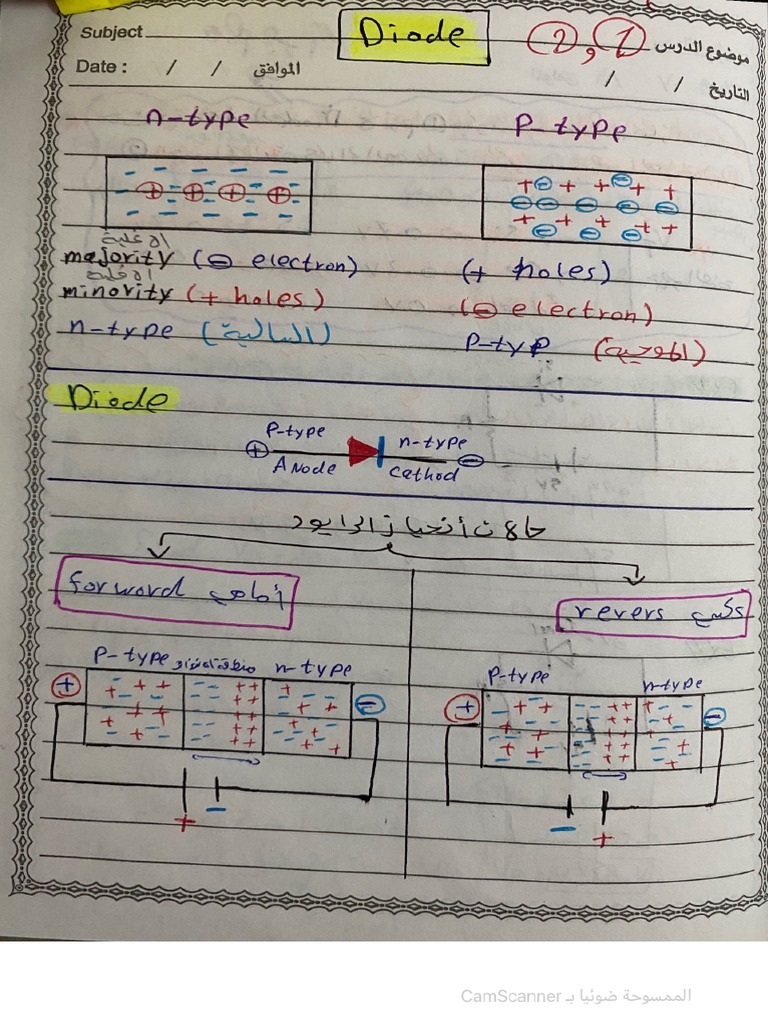 Subject Diode 1 و 2 موضوع الدرس
Date : / / الموافق / / التاريخ
n-type P-type
الاغلبية
majority (⊖ electron) (+ holes)
الاقلية
minority (+ holes) (⊖ electron)
n-type (السالبة) P-typ (الموجبة)
Diode
P-type n-type
⊕ ⊖
ANode Cathod
حالات أنحياز الدايود
forword أمامي revers عكسي
P-type n-type P-type n-type
+ - + -
+ - - +
الممسوحة ضوئيا بـ CamScanner